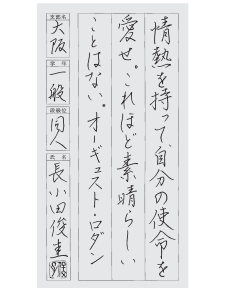 情熱を持って、自分の使命を
愛せ。これほど素晴らしい
ことはない。オーギュスト・ロダン
支部名
大阪
学年
一般
段級位
同人
氏名
長小田俊圭